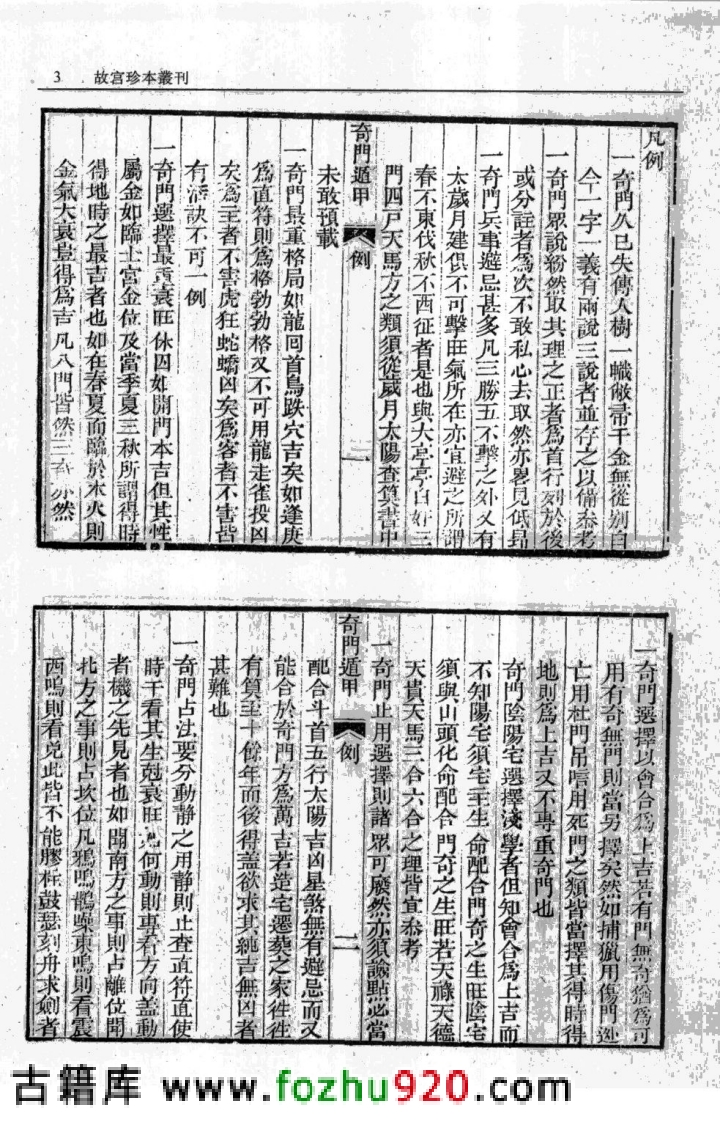 3 故宮珍本叢刊
凡例
一奇門久已失傳人樹一幟敝帚千金無從別白
今一字一義有兩說三說者並存之以備叅考
一奇門眾說紛然取其理之正者為首行列於後
或分註者為次不敢私心去取然亦畧見低昻
一奇門兵事避忌甚多凡三勝五不擊之外又有
太歲月建俱不可擊旺氣所在亦宜避之所謂
春不東伐秋不西征者是也與大亭亭白奸三
門四戸天馬方之類須從歲月太陽查算書中
奇門遁甲 例 一
未敢預載
一奇門最重格局如龍囘首鳥跌穴吉矣如逢庚
為直符則為格勃勃格又不可用龍走雀投凶
矣為主者不害虎狂蛇蟜凶矣為客者不害皆
有活訣不可一例
一奇門選擇最重衰旺休囚如開門本吉但其性
屬金如臨土宮金位及當季夏三秋所謂得時
得地時之最吉者也如在春夏而臨於木火則
金氣大衰豈得為吉凡八門皆然三奇亦然
一奇門選擇以會合為上吉若有門無奇猶為可
用有奇無門則當另擇矣然如捕獵用傷門逃
亡用杜門吊喑用死門之類皆當擇其得時得
地則為上吉又不專重奇門也
奇門陰陽宅選擇淺學者但知會合為上吉而
不知陽宅須宅主生命配合門奇之生旺陰宅
須與山頭化命配合門奇之生旺若天祿天德
天貴天馬三合六合之理皆宜叅考
一奇門止用選擇則諸眾可廢然亦須識點必當
奇門遁甲 例 二
配合斗首五行太陽吉凶星煞無有避忌而又
能合於奇門方為萬吉若造宅遷塟之家徃徃
有算至十餘年而後得盖欲求其純吉無凶者
甚難也
一奇門占法要分動靜之用靜則止查直符直使
時干看其生尅衰旺何動則專看方向盖動
者機之先見者也如聞南方之事則占離位聞
北方之事則占坎位凡鴉鳴鵲噪東鳴則看震
西鳴則看兌此皆不能膠柱鼓瑟刻舟求劍者
古籍库 www.fozhu920.com